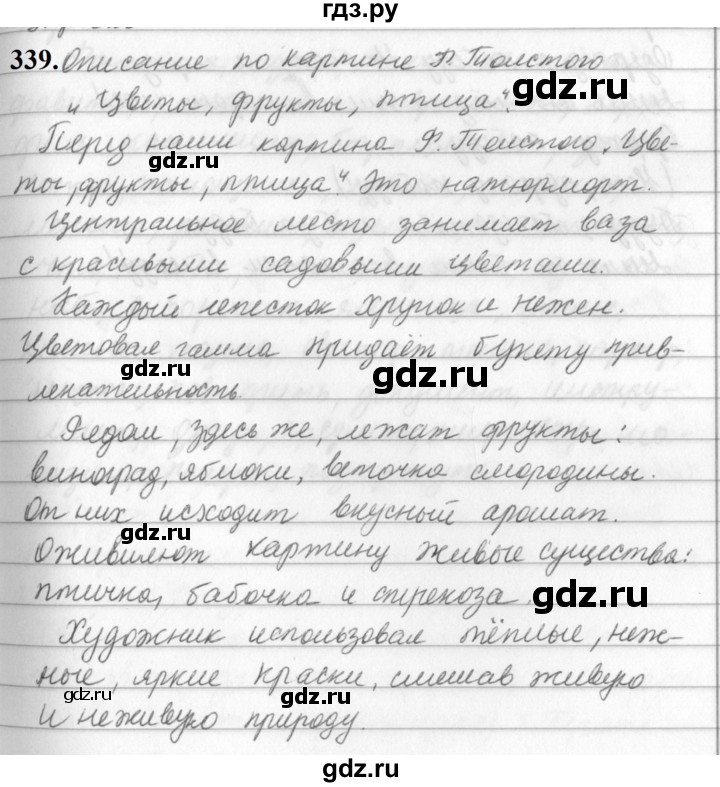 гдз.ру
339. Описание по картине Ф. Толстого
„Цветы, фрукты, птица".
gdz.ru
Перед нами картина Ф. Толстого „Цве-
gdz.ru
ты, фрукты, птица". Это натюрморт.
Центральное место занимает ваза
с красивыми садовыми цветами.
gdz.ru
Каждый лепесток хрупок и нежен.
Цветовая гамма придаёт букету прив-
gdz.ru gdz.ru
лекательность.
Рядом, здесь же, лежат фрукты:
виноград, яблоки, веточка смородины.
От них исходит вкусный аромат.
gdz.ru
Оживляют картину живые существа:
птичка, бабочка и стрекоза
gdz.ru
Художник использовал тёплые, неж-
ные, яркие краски, смешав живую
gdz.ru gdz.ru
и неживую природу.
gdz.ru gdz.ru